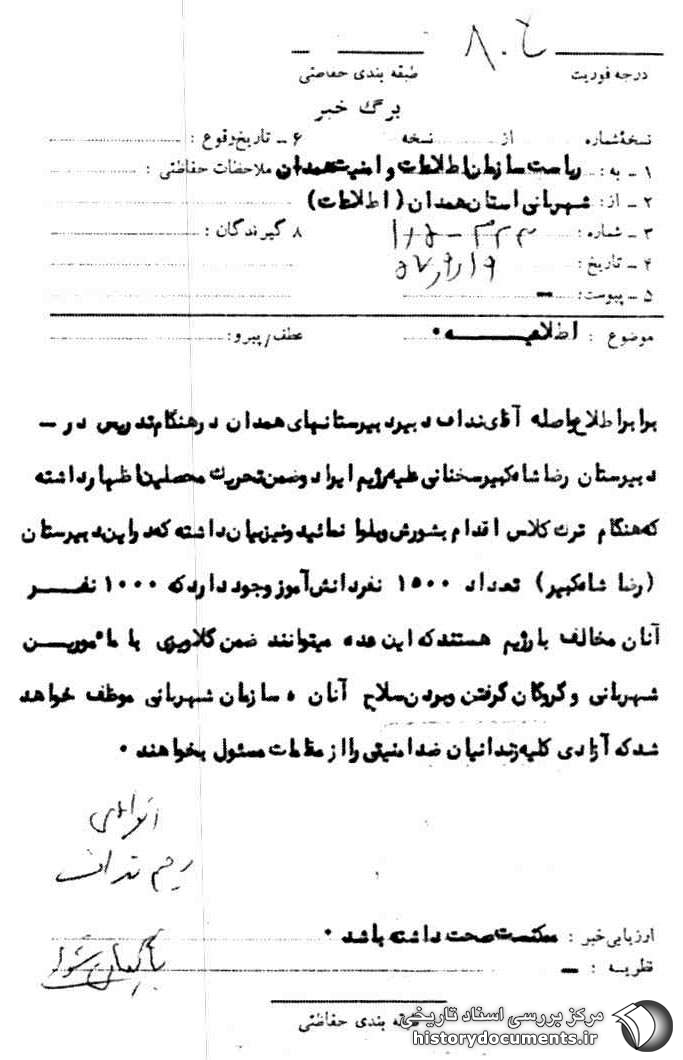 ۸۰۶
درجه فوریت
طبقه بندی حفاظتی
برگ خبر
نسخه شماره از نسخه
۶ – تاریخ وقوع :
۱ – به : ریاست سازمان اطلاعات و امنیت همدان
ملاحظات حفاظتی :
۲ – از : شهربانی استان همدان (اطلاعات)
۳ – شماره :
۸ گیرندگان :
۴ – تاریخ : ۵۷/۹/۱۶
۵ – پیوست : –
موضوع : اطلاعیه .
عطف/پیرو :
برابر اطلاع واصله آقای نداف دبیر دبیرستانهای همدان در هنگام تدریس در –
دبیرستان رضا شاه کبیر سخنانی علیه رژیم ایراد و ضمن تحریک محصلین اظهار داشته
که هنگام ترک کلاس اقدام بشورش و بلوا نمائید و نیز بیان داشته که در این دبیرستان
(رضا شاه کبیر) تعداد ۱۵۰۰ نفر دانش آموز وجود دارد که ۱۰۰۰ نفر
آنان مخالف با رژیم هستند که این عده میتوانند ضمن گلاویزی با مأمورین
شهربانی و گروگان گرفتن و بردن سلاح آنان ه سازمان شهربانی موظف خواهد
شد که آزادی کلیه زندانیان ضد امنیتی را از مقامات مسئول بخواهند .
رحیم نداف
ارزیابی خبر : ممکنست صحت داشته باشد .
بایگانی شود
نظریه : –
طبقه بندی حفاظتی
مرکز بررسی اسناد تاریخی
historydocuments.ir